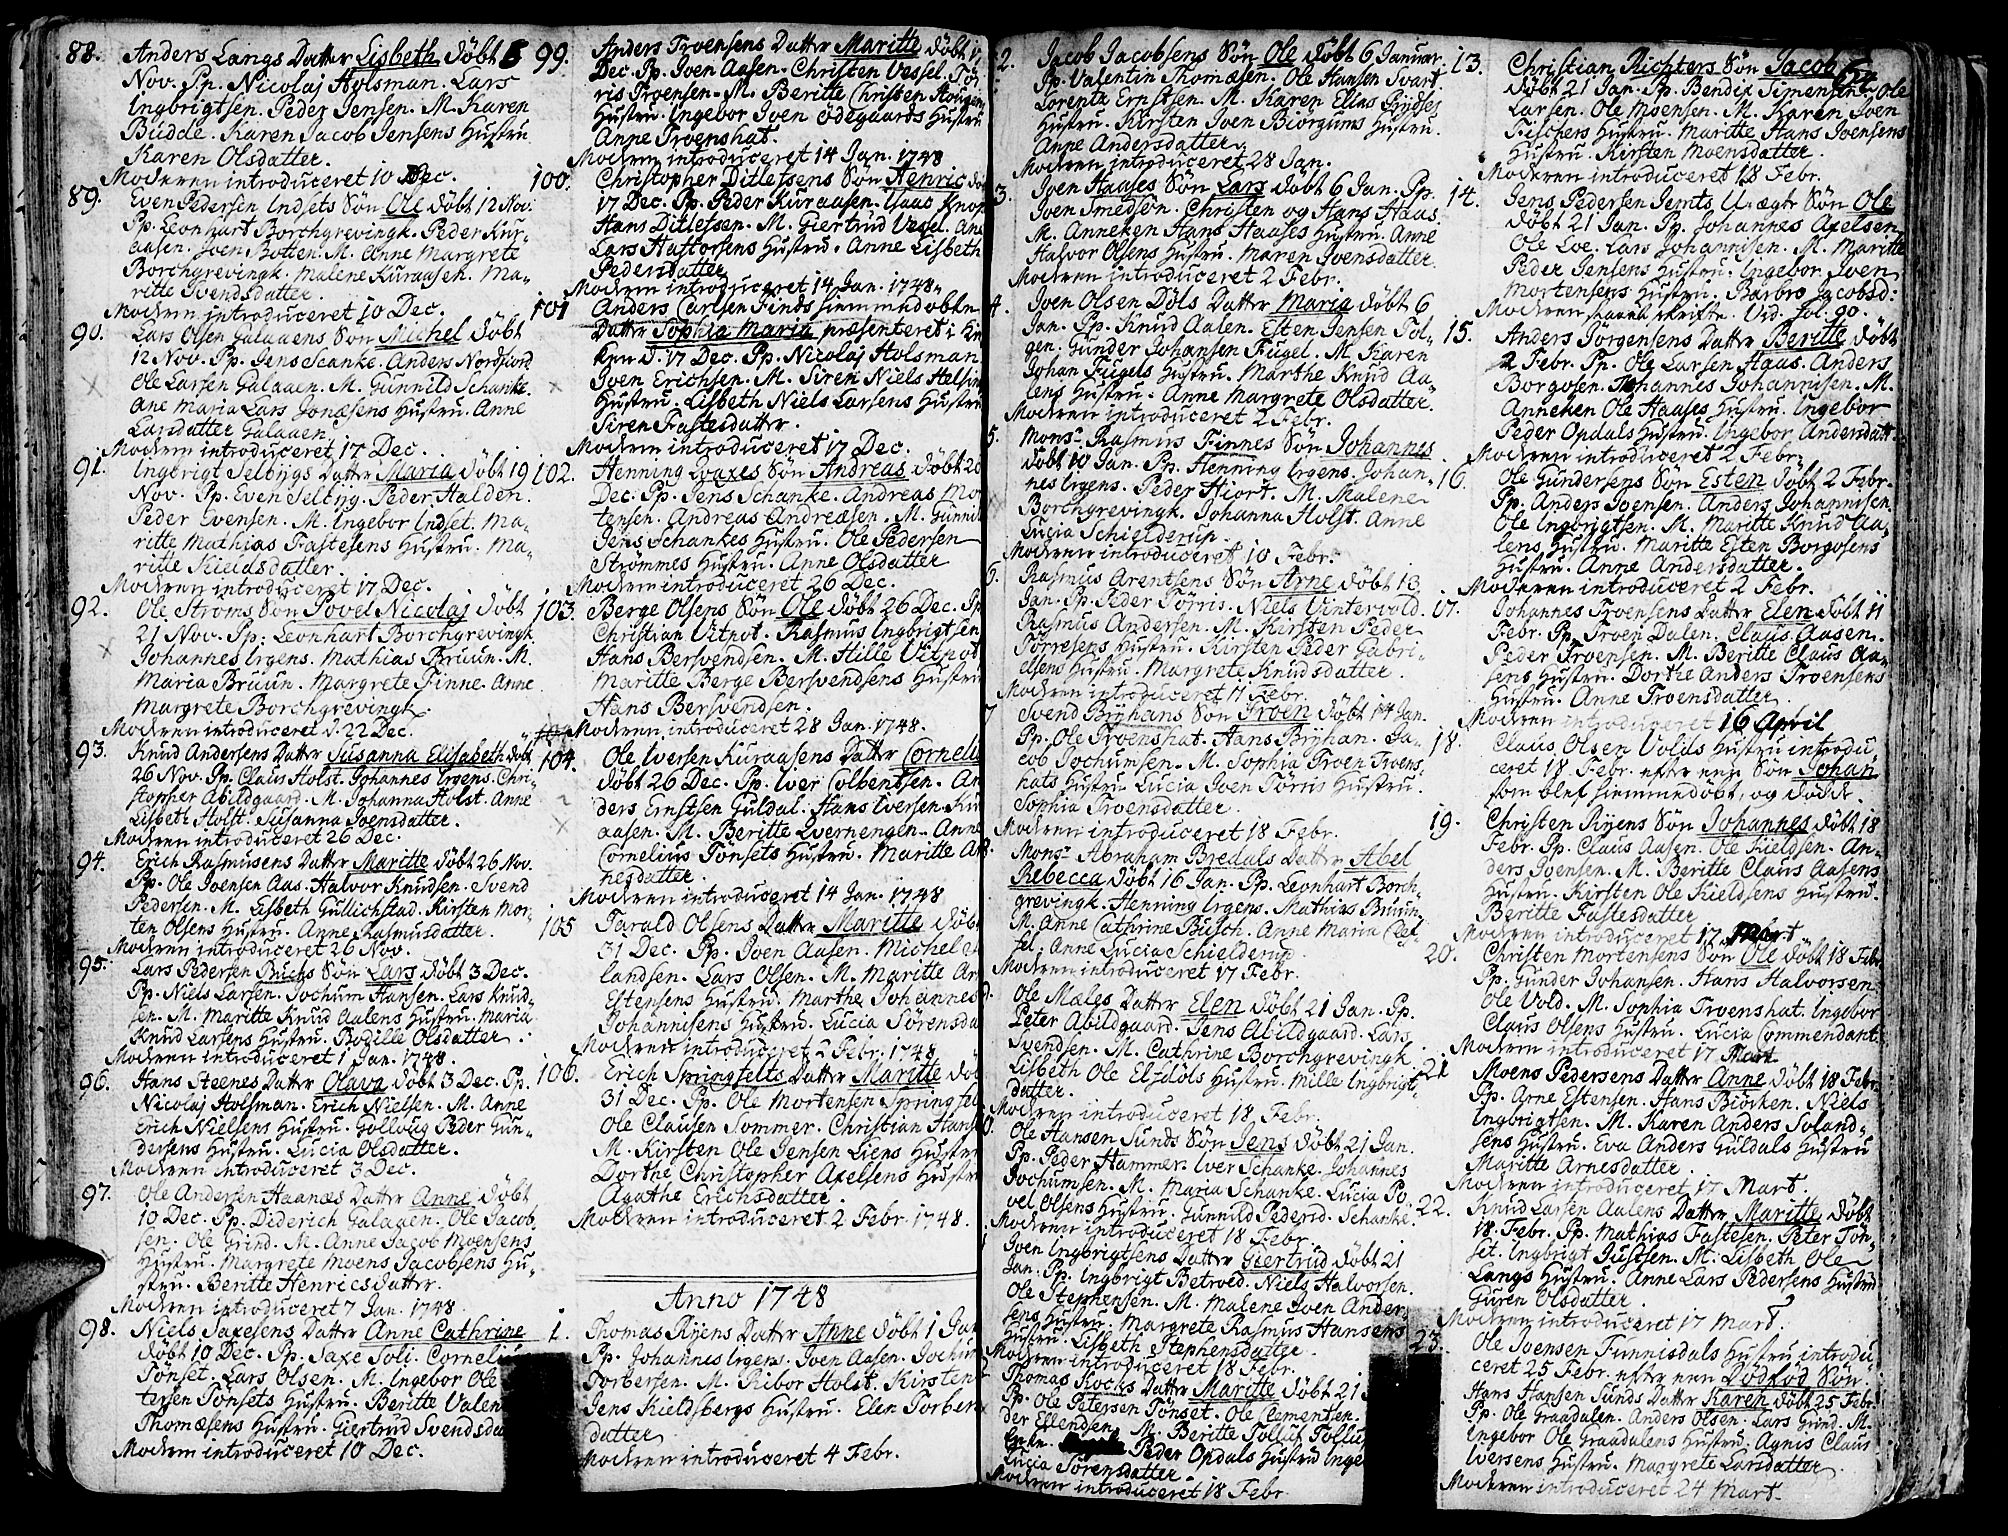 88. Anders Langs Datter Lisbeth döbt 5
Nov. Pp. Nicolaj Holsman. Lars
Ingbrigtsen. Peder Jensen. M. Karen
Budde. Karen Jacob Jensens Hustru
Karen Olsdatter.
Moderen introduceret 10 Dec.
89. Even Pedersen Indsets Sön Ole döbt 12 Nov.
Pp. Leonhart Borchgrevingk. Peder Kur-
aasen. Joen Botten. M. Anne Margrete
Borchgrevingk. Malene Kuraasen. Ma-
ritte Svendsdatter.
Moderen introduceret 10 Dec.
90. Lars Olsen Galaaens Sön Michel döbt
12 Nov. Pp. Jens Scanke. Anders Nordfiord
Ole Larsen Galaaen. M. Gunnild Schanke.
Ane Maria Lars Jonæsens Hustru. Anne
Larsdatter Galaaen.
Moderen introduceret 17 Dec.
91. Ingbrigt Selbygs Datter Maria döbt 19
Nov. Pp. Even Selbyg. Peder Halden.
Peder Evensen. M. Ingebor Indset. Ma-
ritte Mathias Fastesens Hustru. Ma-
ritte Kieldsdatter.
Moderen introduceret 17 Dec.
92. Ole Ströms Sön Povel Nicolaj döbt
21 Nov. Pp. Leonhart Borchgrevingk
Johannes Irgens. Mathias Bruun. M.
Maria Bruun. Margrete Finne. Anne
Margrete Borchgrevingk.
Moderen introduceret d. 22 Dec.
93. Knud Andersens Datter Susanna Elisabeth döbt
26 Nov. Pp. Claus Holst. Johannes Irgens. Chri-
stopher Abildgaard. M. Johanna Holst. Anne
Lisbeth Holst. Susanna Joensdatter.
Moderen introduceret 26 Dec.
94. Erich Rasmusens Datter Maritte döbt 26 Nov.
Pp. Ole Joensen Aas. Halvor Knudsen. Svend
Pedersen. M. Lisbeth Gullichstad. Kirsten Mor-
ten Olsens Hustru. Anne Rasmusdatter.
Moderen introduceret 26 Nov.
95. Lars Pedersen Buchs Sön Lars döbt 3 Dec.
Pp. Niels Larsen. Jochum Hansen. Lars Knud-
sen. M. Maritte Knud Aalens Hustru. Maria
Knud Larsens Hustru. Bodille Olsdatter.
Moderen introduceret 1 Jan. 1748.
96. Hans Steenes Datter Olava döbt 3 Dec. Pp.
Nicolaj Holsman. Erich Nielsen. M. Anne
Erich Nielsens Hustru. Golloug Peder Gun-
dersens Hustru. Lucia Olsdatter.
Moderen introduceret 3 Dec.
97. Ole Andersen Haanæs Datter Anne döbt
10 Dec. Pp. Diderich Galaaen. Ole Jacob-
sen. Ole Grind. M. Anne Jacob Moensens
Hustru. Margrete Moens Jacobsens Hu-
stru. Beritte Henricsdatter.
Moderen introduceret 7 Jan. 1748.
98. Niels Saxesens Datter Anne Cathrine
döbt 10 Dec. Pp. Saxe Soli. Cornelius
Tönset. Lars Olsen. M. Ingebor Ole
tersen Tönsets Hustru. Beritte Valen
Thomæsens Hustru. Giertrud Svendsda
Moderen introduceret 10 Dec.
99. Anders Troensens Datter Maritte döbt
Dec. Pp. Joen Aasen. Christen Vessel. Tör-
ris Troensen. M. Beritte Christen Hougen
Hustru. Ingebor Joen Ödegaards Hustru
Anne Troenshat.
Moderen introduceret 14 Jan. 1748
100. Christopher Ditlefsens Sön Henric döb
17 Dec. Pp. Peder Kuraasen. Isaac Knop
Hans Ditlefsen. M. Giertrud Vesel. Ane
Lars Hastorsens Hustru. Anne Lisbeth
Pedersdatter
Moderen introduceret 14 Jan. 1748.
101 Anders Carlsen Finds hiemmedöbte
Datter Sophia Maria præsenteret i Kir
ken d. 17 Dec. Pp. Nicolaj Holsman
Joen Erichsen. M. Siren Niels Helsin
Hustru. Lisbeth Niels Larsens Hustru
Siren Fastesdatter.
Moderen introduceret 17 Dec.
102. Henning Loaxes Sön Andreas döbt 26
Dec. Pp. Jens Schanke. Andreas Mor
tensen. Andreas Andreasen. M. Gunnil
Jens Schankes Hustru. Ole Pedersen
Strömmes Hustru. Anne Olsdatter
Moderen introduceret 26 Dec.
103. Berge Olsens Sön Ole döbt 26 Dec. Pp
Christian Vitnot. Rasmus Ingbrigtsen
Hans Bersvendsen. M. Hille Vitnot
Maritte Berge Bersvendsens Hustru
Hans Bersvendsen.
Moderen introduceret 28 Jan. 1748.
104. Ole Iversen Kuraasens Datter Corneli
döbt 26 Dec. Pp. Iver Colbentsen. An
ders Ernstsen Guldal. Hans Iversen Kur
aasen. M. Beritte Kvernengen. Anne
Cornelius Tönsets Hustru. Maritte Ar
nesdatter.
Moderen introduceret 14 Jan. 1748
105 Tarald Olsens Datter Maritte döbt
31 Dec. Pp. Joen Aasen. Michel E
landsen. Lars Olsen. M. Maritte Arn
Estensens Hustru. Marthe Johannes
Johannisens Hustru. Lucia Sörensda
Moderen introduceret 2 Febr. 1748
106. Erich Springfelts Datter Maritte döb
31 Dec. Pp. Ole Mortensen Springfel
Ole Clausen Sommer. Christian Hanse
M. Kirsten Ole Jensen Liens Hustru
Dorthe Christopher Axelsens Hustru
Agathe Erichsdatter.
Moderen introduceret 2 Febr. 1748.
Anno 1748
1. Thomas Ryens Datter Anne döbt 1 Jan
Pp. Johannes Irgens. Joen Aasen. Jochum
Torbersen. M. Ribor Holst. Kirsten
Jens Kieldsbergs Hustru. Elen Torben
datter
Moderen introduceret 4 Febr.
2. Jacob Jacobsens Sön Ole döbt 6 Januar.
Pp. Valentin Thomæsen. Ole Hansen Svart
Lorentz Ernstsen. M. Karen Elias Prydses
Hustru. Kirsten Joen Biörgums Hustru.
Anne Andersdatter.
Moderen introduceret 28 Jan.
3. Joen Haases Sön Lars döbt 6 Jan. Pp.
Joen Smedsön. Christen og Hans Haas.
M. Anneken Hans Haases Hustru. Anne
Halvor Olsens Hustru. Maren Joensdatter.
Moderen introduceret 2 Febr.
4. Joen Olsen Döls Datter Maria döbt 6
Jan. Pp. Knud Aalen. Esten Jensen Tol-
gen. Gunder Johansen Fugel. M. Karen
Johan Fugels Hustru. Marthe Knud Aa-
lens Hustru. Anne Margrete Olsdatter.
Moderen introduceret 2 Febr.
5. Monsr. Rasmus Finnes Sön Johannes
döbt 10 Jan. Pp. Henning Irgens. Johan-
nes Irgens. Peder Hiort. M. Malene
Borchgrevingk. Johanna Holst. Anne
Lucia Schielderup.
Moderen introduceret 10 Febr.
6. Rasmus Arentsens Sön Arne döbt 13
Jan. Pp. Peder Törris. Niels Vintervold.
Rasmus Andersen. M. Kirsten Peder
Törresens Hustru. Kirsten Peder Gabri-
elsens Hustru. Margrete Knudsdatter.
Moderen introduceret 17 Febr.
7 Svend Bryhans Sön Troen döbt 14 Jan.
Pp. Ole Troenshat. Hans Bryhan. Ja-
cob Jochumsen. M. Sophia Troen Troens-
hats Hustru Lucia Joen Törris Hustru.
Sophia Troensdatter.
Moderen introduceret 18 Febr.
8. Monsr Abraham Bredals Datter Abel
Rebecca döbt 16 Jan. Pp. Leonhart Borch-
grevingk. Henning Irgens. Mathias Bruun.
M. Anne Cathrine Busch. Anne Maria Clef-
fel. Anne Lucia Schielderup
Moderen introduceret 17 Febr.
9. Ole Mæles Datter Elen döbt 21 Jan. Pp.
Peter Abildgaard. Jens Abildgaard. Lars
Svendsen. M. Cathrine Borchgrevingk
Lisbeth Ole Elsdöls Hustru. Mille Ingbrigt-
datter.
Moderen introduceret 18 Febr.
0. Ole Hansen Sunds Sön Jens döbt 21 Jan.
Pp. Peder Hammer. Iver Schanke. Johannes
Jochumsen. M. Maria Schanke. Lucia Po
vel Olsens Hustru. Gunnild Pedersd. Schanke.
Moderen introduceret 18 Febr.
1 Joen Ingbrigtsens Datter Giertrud döbt 21
Jan. Pp. Ingbrigt Betroed. Niels Halvorsen.
Ole Stephensen. M. Malene Joen Ander-
sens Hustru. Margrete Rasmus Hansens
Hustru. Lisbeth Stephensdatter.
Moderen introduceret 18 Febr.
Thomas Kocks Datter Maritte döbt 21
Pp. Ole Petersen Tönset. Ole Clementsen.
der Ellendsen. M. Beritte Tolluf Tolluf
Enke. Peder Opdals Hustru Inge
Lucia Sörensdatter.
Moderen introduceret 18 Febr.
13. Christian Richters Sön Jacob
döbt 21 Jan. Pp. Bendix Simensen. Ole
Larsen. Ole Moensen. M. Karen Joen
Fischers Hustru. Maritte Hans Joensens
Hustru. Kirsten Moensdatter.
Moderen introduceret 18 Febr.
14. Jens Pedersen Jemts Uægte Sön Ole
döbt 21 Jan. Pp. Johannes Axelsen
Ole Loe. Lars Johannisen. M. Maritte
Peder Jensens Hustru. Ingebor Joen
Mortensens Hustru. Barbro Jacobsd:
Moderen skrifte. Vid. fol. 90.
15. Anders Jörgensens Datter Beritte döbt
2 Febr. Pp. Ole Larsen Haas. Anders
Borgosen. Johannes Johannisen. M.
Anneken Ole Haases Hustru. Ingebor
Peder Opdals Hustru. Ingebor Andersdatt
Moderen introduceret 2 Febr.
16. Ole Gundersens Sön Esten döbt 2 Febr.
Pp. Anders Joensen. Anders Johannisen.
Ole Ingbrigtsen. M. Maritte Knud Aa-
lens Hustru. Maritte Esten Borgosens
Hustru. Anne Andersdatter.
Moderen introduceret 2 Febr.
17. Johannes Troensens Datter Elen döbt 11
Febr. Pp. Troen Dalen. Claus Aasen.
Peder Troensen. M. Beritte Claus Aa-
sens Hustru. Dorthe Anders Troensens
Hustru. Anne Troensdatter.
Moderen introduceret 16 April
18. Claus Olsen Volds Hustru introdu
ceret 18 Febr. efter een Sön Johan
som blef hiemmedöbt, og döde.
19. Christen Ryens Sön Johannes döbt 18
Febr. Pp. Claus Aasen. Ole Kieldsen. An-
ders Joensen. M. Beritte Claus Aasens
Hustru. Kirsten Ole Kieldsens Hustru.
Beritte Fastesdatter
Moderen introduceret 17 Mart
20. Christen Mortensens Sön Ole döbt 18 Febr.
Pp. Gunder Johansen. Hans Halvorsen
Ole Vold. M. Sophia Troenshat. Ingebor
Claus Olsens Hustru. Lucia Commendant.
Moderen introduceret 17 Mart
21 Moens Pedersens Datter Anne döbt 18 Febr.
Pp. Arne Estensen. Hans Biörken. Niels
Ingbrigtsen. M. Karen Anders Soland-
sens Hustru. Eva Anders Guldals Hustru
Maritte Arnesdatter.
Moderen introduceret 17 Mart.
22. Knud Larsen Aalens Datter Maritte döbt
18. Febr. Pp. Mathias Fastesen. Peter Tön-
set. Ingbrigt Justsen. M. Lisbeth Ole
Langs Hustru. Anne Lars Pedersens Hustru
Guren Olsdatter.
Moderen introduceret 17 Mart.
23. Ole Joensen Funnisdals Hustru introdu
ceret 25 Febr. efter een Dödfod Sön.
Hans Hansen Sunds Datter Karen döbt 25 Febr.
Pp. Ole Graadalen. Anders Olsen. Lars Grind. M.
Ingebor Ole Graadalens Hustru. Agnis Claus
Iversens Hustru. Margrete Larsdatter.
Moderen introduceret 24 Mart.